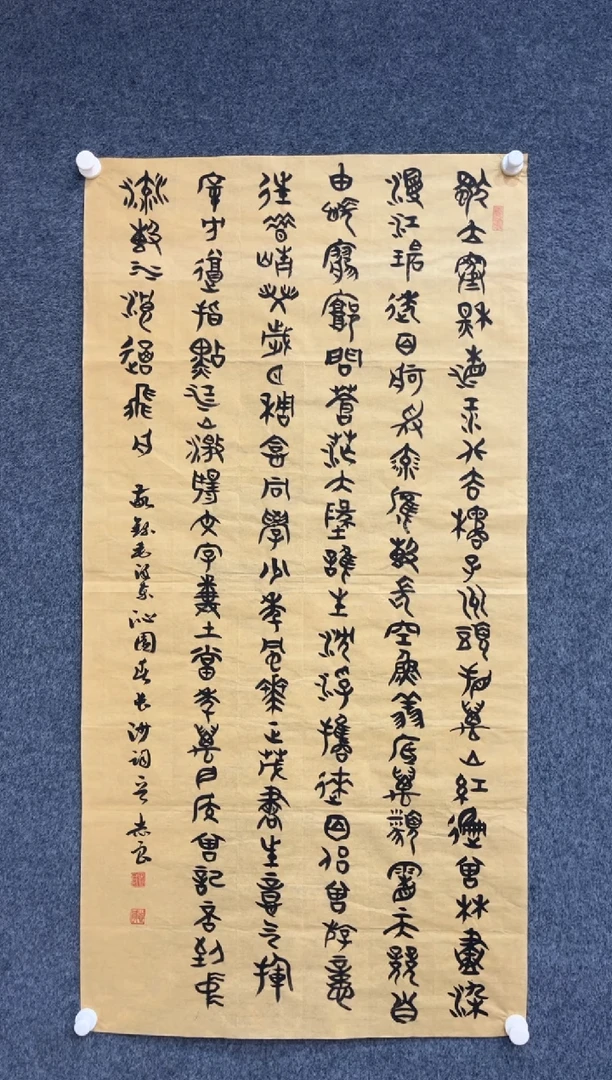 獨立寒秋湘江北去橘子洲頭看萬山紅遍層林盡染
漫江碧透百舸爭流鷹擊長空魚翔淺底萬類霜天競自
由悵寥廓問蒼茫大地誰主沉浮攜來百侶曾游憶
往昔崢嶸歲月稠恰同學少年風華正茂書生意氣揮
斥方遒指點江山激揚文字糞土當年萬戶侯曾記否到中
流擊水浪遏飛舟 敬錄毛澤東沁園春長沙詞 志良